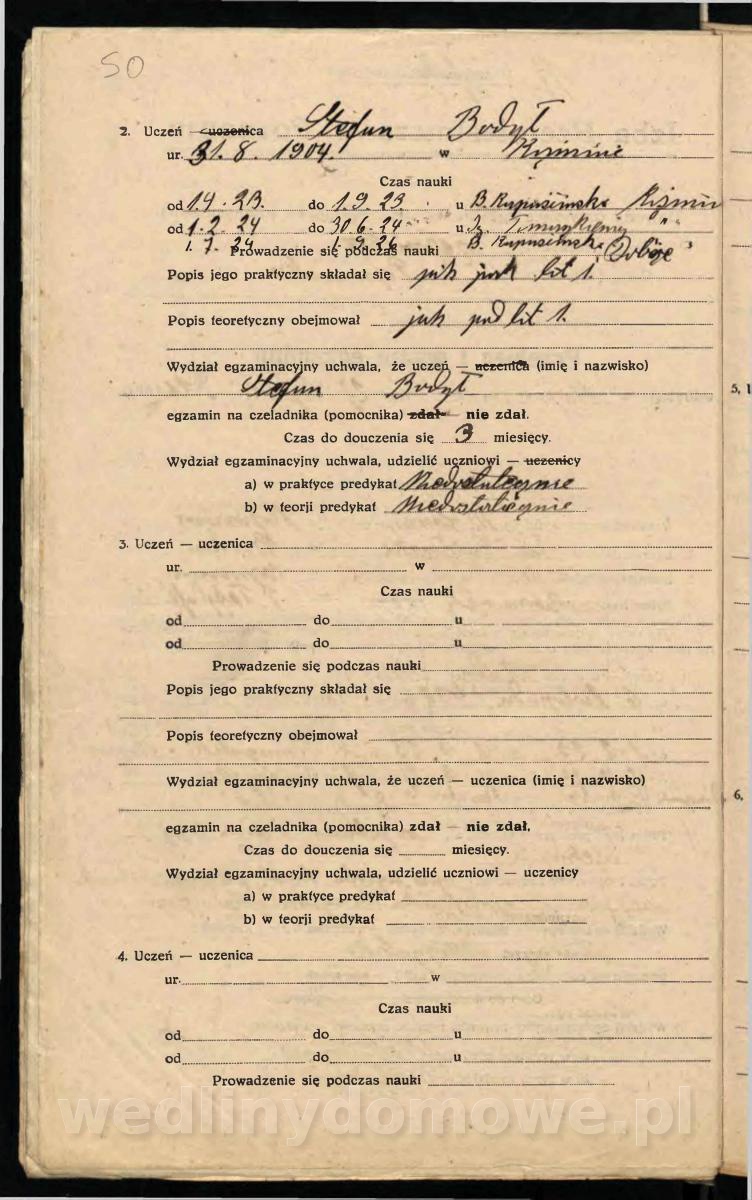 50
2. Uczeń — uczenica Stefan Bodył
ur. 31.8. 1904. w
Czas nauki
od 1.4.23. do 1.9.23. u B.
od 1.2.24 do 30.6.24 u
1.7.24 1.9.26 B.
Prowadzenie się podczas nauki Dobre
Popis jego praktyczny składał się jak lit 1.
Popis teoretyczny obejmował jak pod lit 1.
Wydział egzaminacyjny uchwala, że uczeń — uczenica (imię i nazwisko)
Stefan Bodył
egzamin na czeladnika (pomocnika) zdał — nie zdał.
Czas do douczenia się 3 miesięcy.
Wydział egzaminacyjny uchwala, udzielić uczniowi — uczenicy
a) w praktyce predykat Niedostatecznie
b) w teorji predykat Niedostatecznie
3. Uczeń — uczenica
ur. w
Czas nauki
od do u
od do u
Prowadzenie się podczas nauki
Popis jego praktyczny składał się
Popis teoretyczny obejmował
Wydział egzaminacyjny uchwala, że uczeń — uczenica (imię i nazwisko)
egzamin na czeladnika (pomocnika) zdał — nie zdał.
Czas do douczenia się miesięcy.
Wydział egzaminacyjny uchwala, udzielić uczniowi — uczenicy
a) w praktyce predykat
b) w teorji predykat
4. Uczeń — uczenica
ur. w
Czas nauki
od do u
od do u
Prowadzenie się podczas nauki
wedlinydomowe.pl
5,
6,